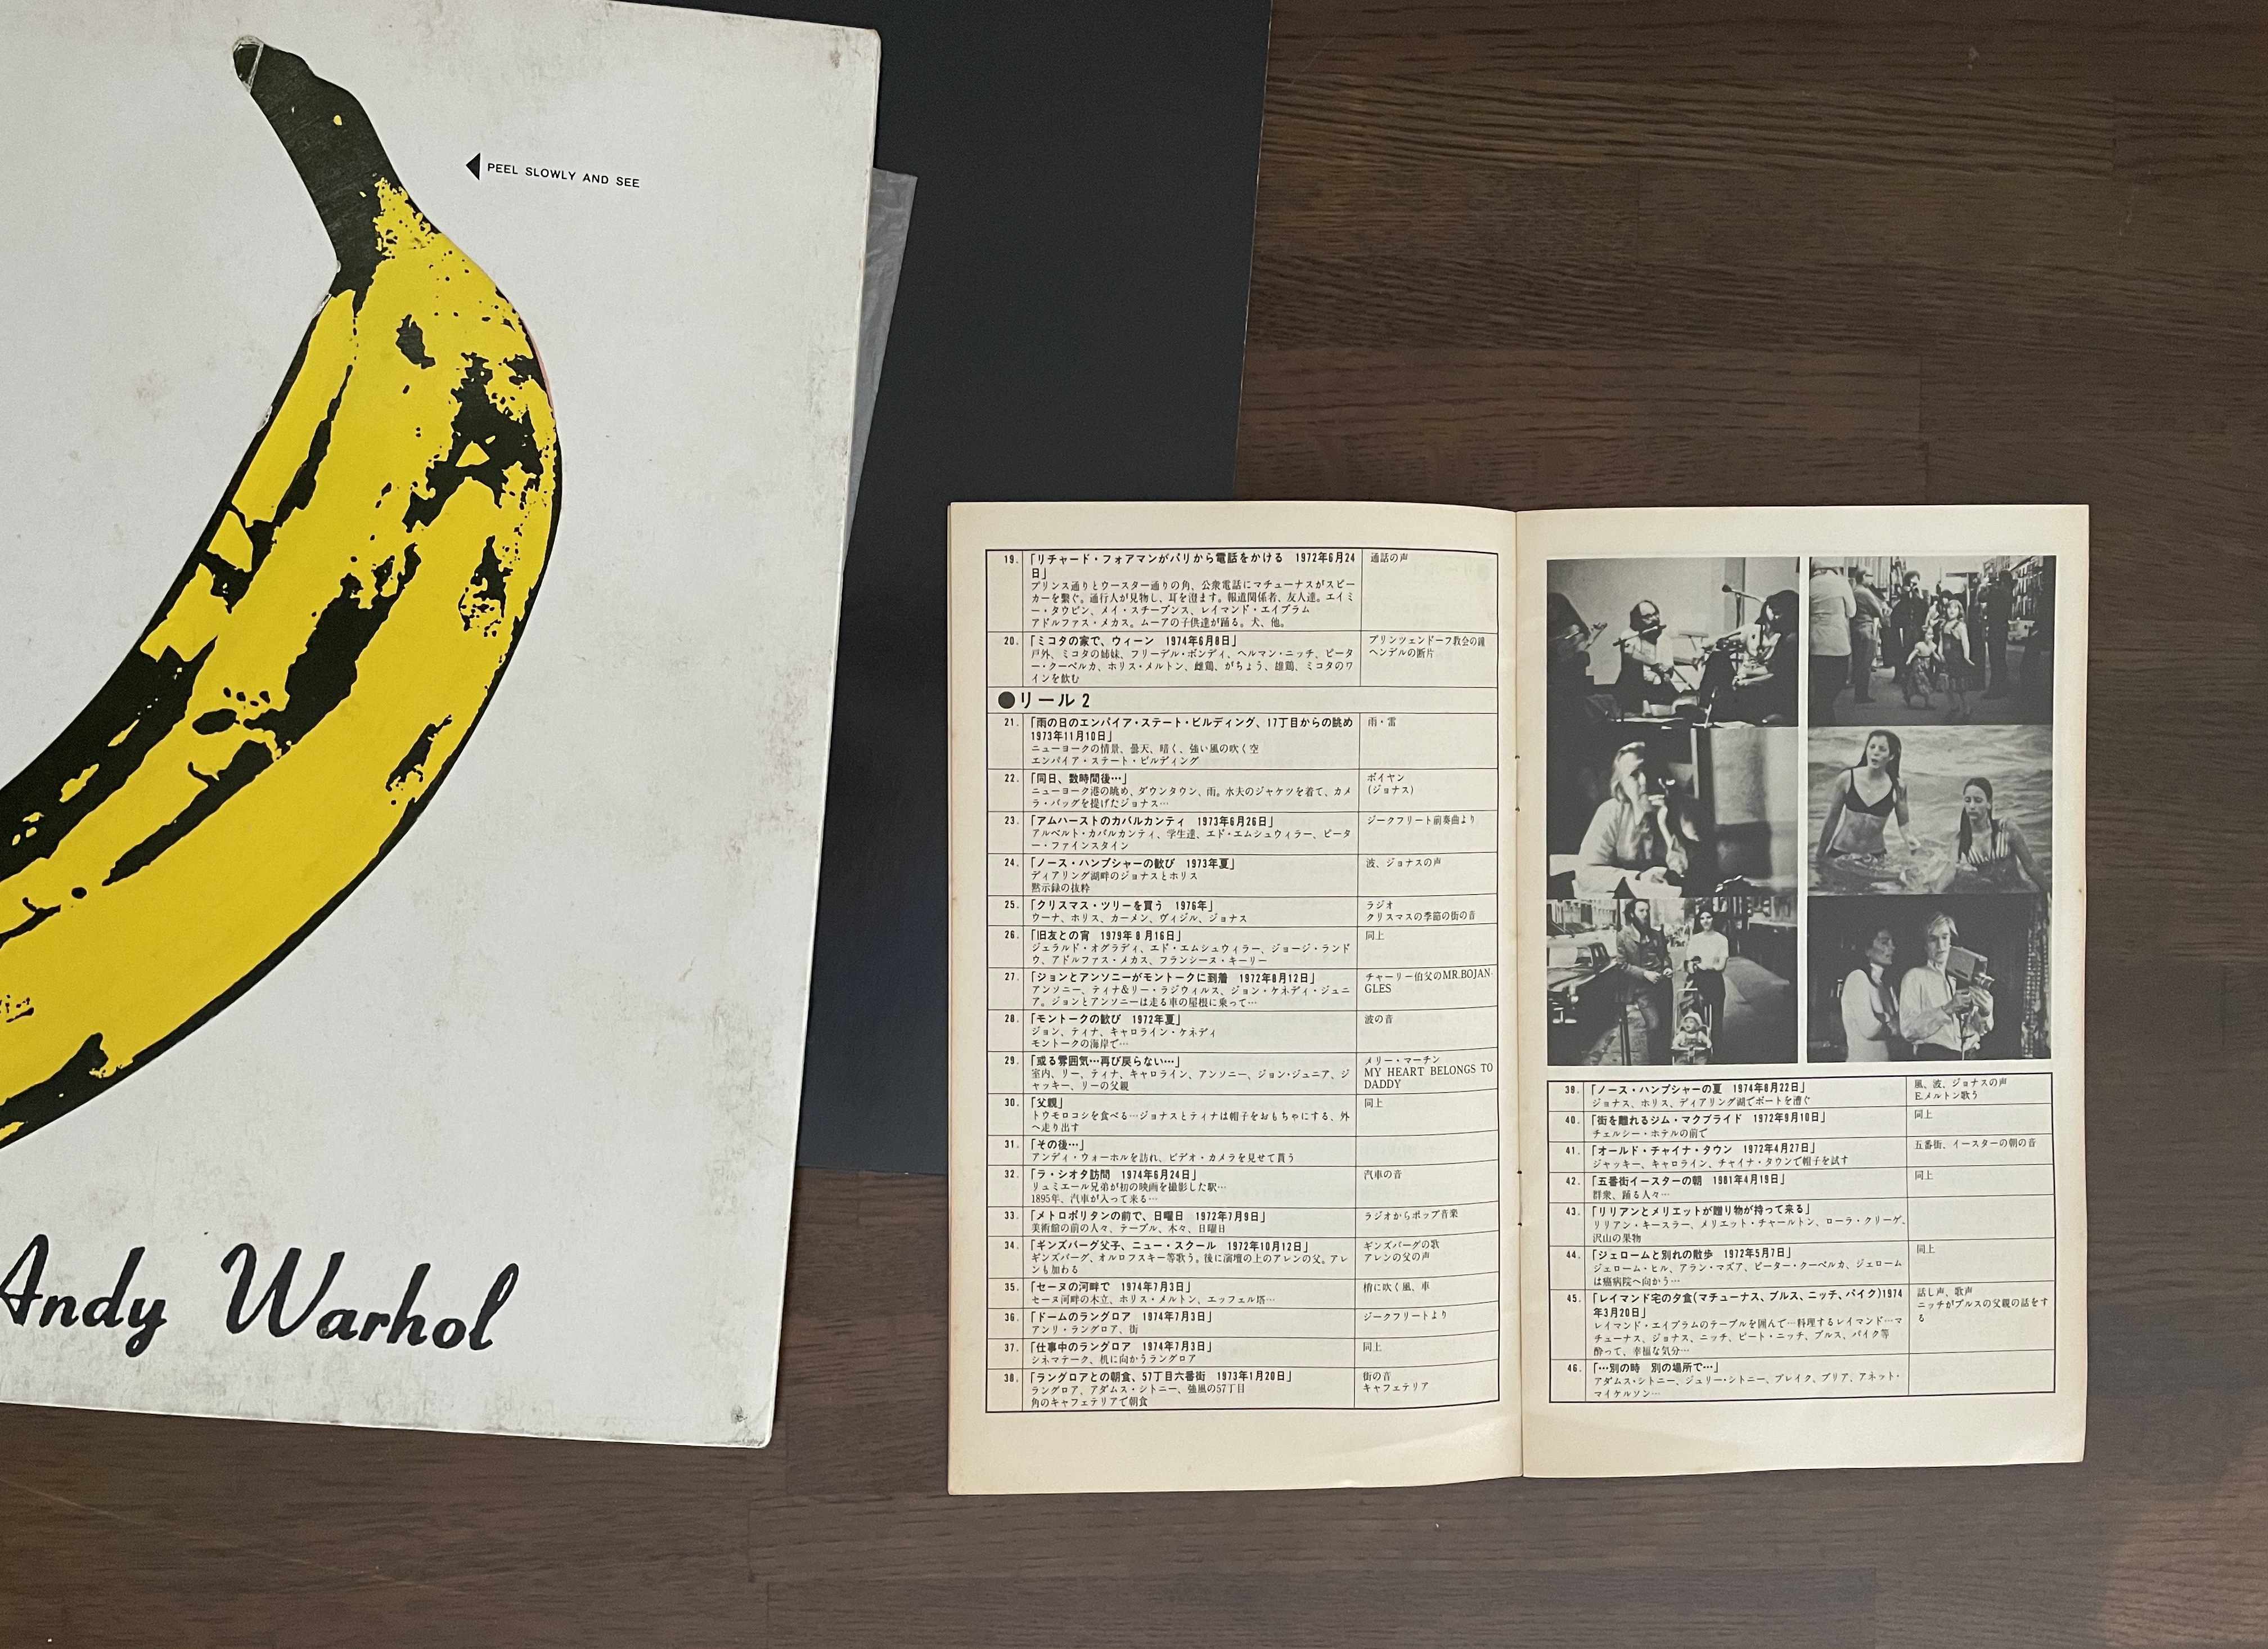 PEEL SLOWLY AND SEE
Andy Warhol
19. 「リチャード・フォアマンがパリから電話をかける 1972年6月24 通話の声
日」
プリンス通りとウースター通りの角、公衆電話にマチューナスがスピー
カーを繋ぐ。通行人が見物し、耳を澄ます。報道関係者、友人達。エイミ
ー・タウビン、メイ・スチーブンス、レイマンド・エイブラム
アドルファス・メカス。ムーアの子供達が踊る。犬、他。
20. 「ミコタの家で、ウィーン 1974年6月8日」 プリンツェンドーフ教会の鐘
戸外、ミコタの姉妹、フリーデル・ボンディ、ヘルマン・ニッチ、ピータ ヘンデルの断片
ー・クーベルカ、ホリス・メルトン、雌鶏、がちょう、雄鶏、ミコタのワ
インを飲む
●リール2
21. 「雨の日のエンパイア・ステート・ビルディング、17丁目からの眺め 雨・雷
1973年11月10日」
ニューヨークの情景、曇天、暗く、強い風の吹く空
エンパイア・ステート・ビルディング
22. 「同日、数時間後…」 ボイヤン
ニューヨーク港の眺め、ダウンタウン、雨。水夫のジャケツを着て、カメ (ジョナス)
ラ・バッグを提げたジョナス…
23. 「アムハーストのカバルカンティ 1973年6月26日」 ジークフリート前奏曲より
アルベルト・カバルカンティ、学生達、エド・エムシュウィラー、ピータ
ー・ファインスタイン
24. 「ノース・ハンプシャーの歓び 1973年夏」 波、ジョナスの声
ディアリング湖畔のジョナスとホリス
黙示録の抜粋
25. 「クリスマス・ツリーを買う 1976年」 ラジオ
ウーナ、ホリス、カーメン、ヴィジル、ジョナス クリスマスの季節の街の音
26. 「旧友との宵 1979年8月16日」 同上
ジェラルド・オグラディ、エド・エムシュウィラー、ジョージ・ランド
ウ、アドルファス・メカス、フランシーヌ・キーリー
27. 「ジョンとアンソニーがモントークに到着 1972年8月12日」 チャーリー伯父のMR.BOJAN-
アンソニー、ティナ&リー・ラジウィルス、ジョン・ケネディ・ジュニ GLES
ア。ジョンとアンソニーは走る車の屋根に乗って…
28. 「モントークの歓び 1972年夏」 波の音
ジョン、ティナ、キャロライン・ケネディ
モントークの海岸で…
29. 「或る雰囲気…再び戻らない…」 メリー・マーチン
室内、リー、ティナ、キャロライン、アンソニー、ジョン・ジュニア、ジ MY HEART BELONGS TO
ャッキー、リーの父親 DADDY
30. 「父親」 同上
トウモロコシを食べる…ジョナスとティナは帽子をおもちゃにする、外
へ走り出す
31. 「その後…」
アンディ・ウォーホルを訪れ、ビデオ・カメラを見せて貰う
32. 「ラ・シオタ訪問 1974年6月24日」 汽車の音
リュミエール兄弟が初の映画を撮影した駅…
1895年、汽車が入って来る…
33. 「メトロポリタンの前で、日曜日 1972年7月9日」 ラジオからポップ音楽
美術館の前の人々、テーブル、木々、日曜日
34. 「ギンズバーグ父子、ニュー・スクール 1972年10月12日」 ギンズバーグの歌
ギンズバーグ、オルロフスキー等歌う。後に演壇の上のアレンの父。アレ アレンの父の声
ンも加わる
35. 「セーヌの河畔で 1974年7月3日」 梢に吹く風、車
セーヌ河畔の木立、ホリス・メルトン、エッフェル塔…
36. 「ドームのラングロア 1974年7月3日」 ジークフリートより
アンリ・ラングロア、街
37. 「仕事中のラングロア 1974年7月3日」 同上
シネマテーク、机に向かうラングロア
38. 「ラングロアとの朝食、57丁目六番街 1973年1月20日」 街の音
ラングロア、アダムス・シトニー、強風の57丁目 キャフェテリア
角のキャフェテリアで朝食
39. 「ノース・ハンプシャーの夏 1974年8月22日」 風、波、ジョナスの声
ジョナス、ホリス、ディアリング湖でボートを漕ぐ E.メルトン歌う
40. 「街を離れるジム・マクブライド 1972年9月10日」 同上
チェルシー・ホテルの前で
41. 「オールド・チャイナ・タウン 1972年4月27日」 五番街、イースターの朝の音
ジャッキー、キャロライン、チャイナ・タウンで帽子を試す
42. 「五番街イースターの朝 1981年4月19日」 同上
群衆、踊る人々…
43. 「リリアンとメリエットが贈り物が持って来る」
リリアン・キースラー、メリエット・チャールトン、ローラ・クリーゲ、
沢山の果物
44. 「ジェロームと別れの散歩 1972年5月7日」 同上
ジェローム・ヒル、アラン・マズア、ピーター・クーベルカ、ジェローム
は癌病院へ向かう…
45. 「レイマンド宅の夕食(マチューナス、ブルス、ニッチ、パイク)1974 話し声、歌声
年3月20日」 ニッチがブルスの父親の話をす
レイマンド・エイブラムのテーブルを囲んで…料理するレイマンド…マ る
チューナス、ジョナス、ニッチ、ビート・ニッチ、ブルス、パイク等
酔って、幸福な気分…
46. 「…別の時 別の場所で…」
アダムス・シトニー、ジュリー・シトニー、ブレイク、ブリア、アネット・
マイケルソン…